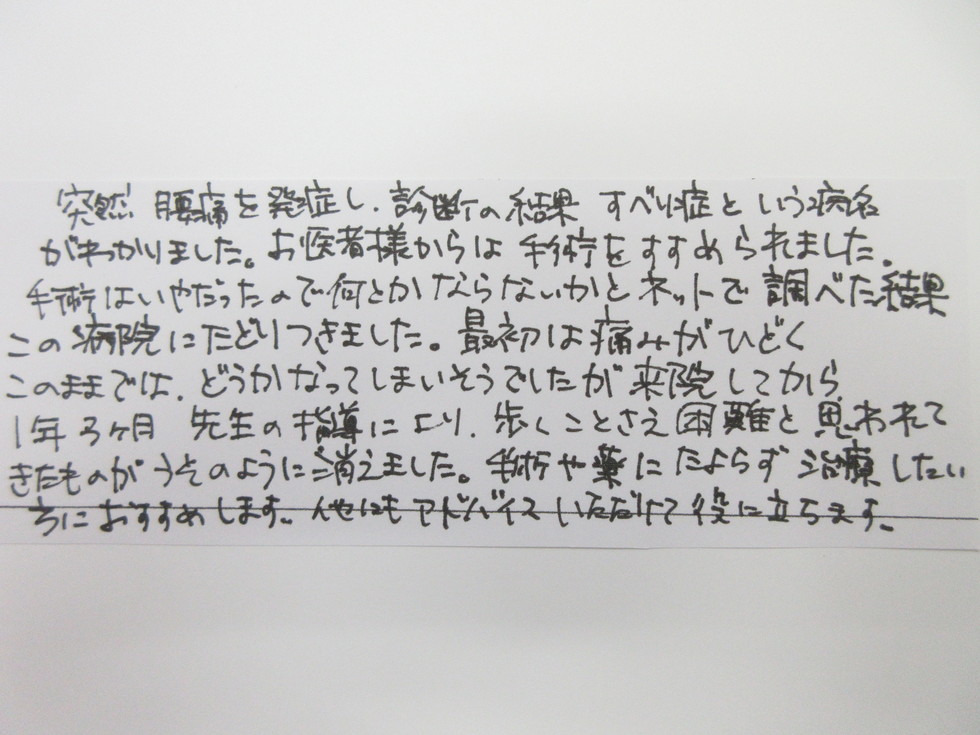 突然 腰痛を発症し、診断の結果 すべり症という病名
がわかりました。お医者様からは 手術をすすめられました。
手術はいやだったので何とかならないかと ネットで 調べた結果
この病院にたどりつきました。最初は痛みがひどく
このままでは、どうかなってしまいそうでしたが来院してから
1年3ヶ月 先生の指導により、歩くことさえ困難と思われて
きたものがうそのように消えました。手術や薬にたよらず治療したい
方におすすめします。他にもアドバイスいただけて役に立ちます。